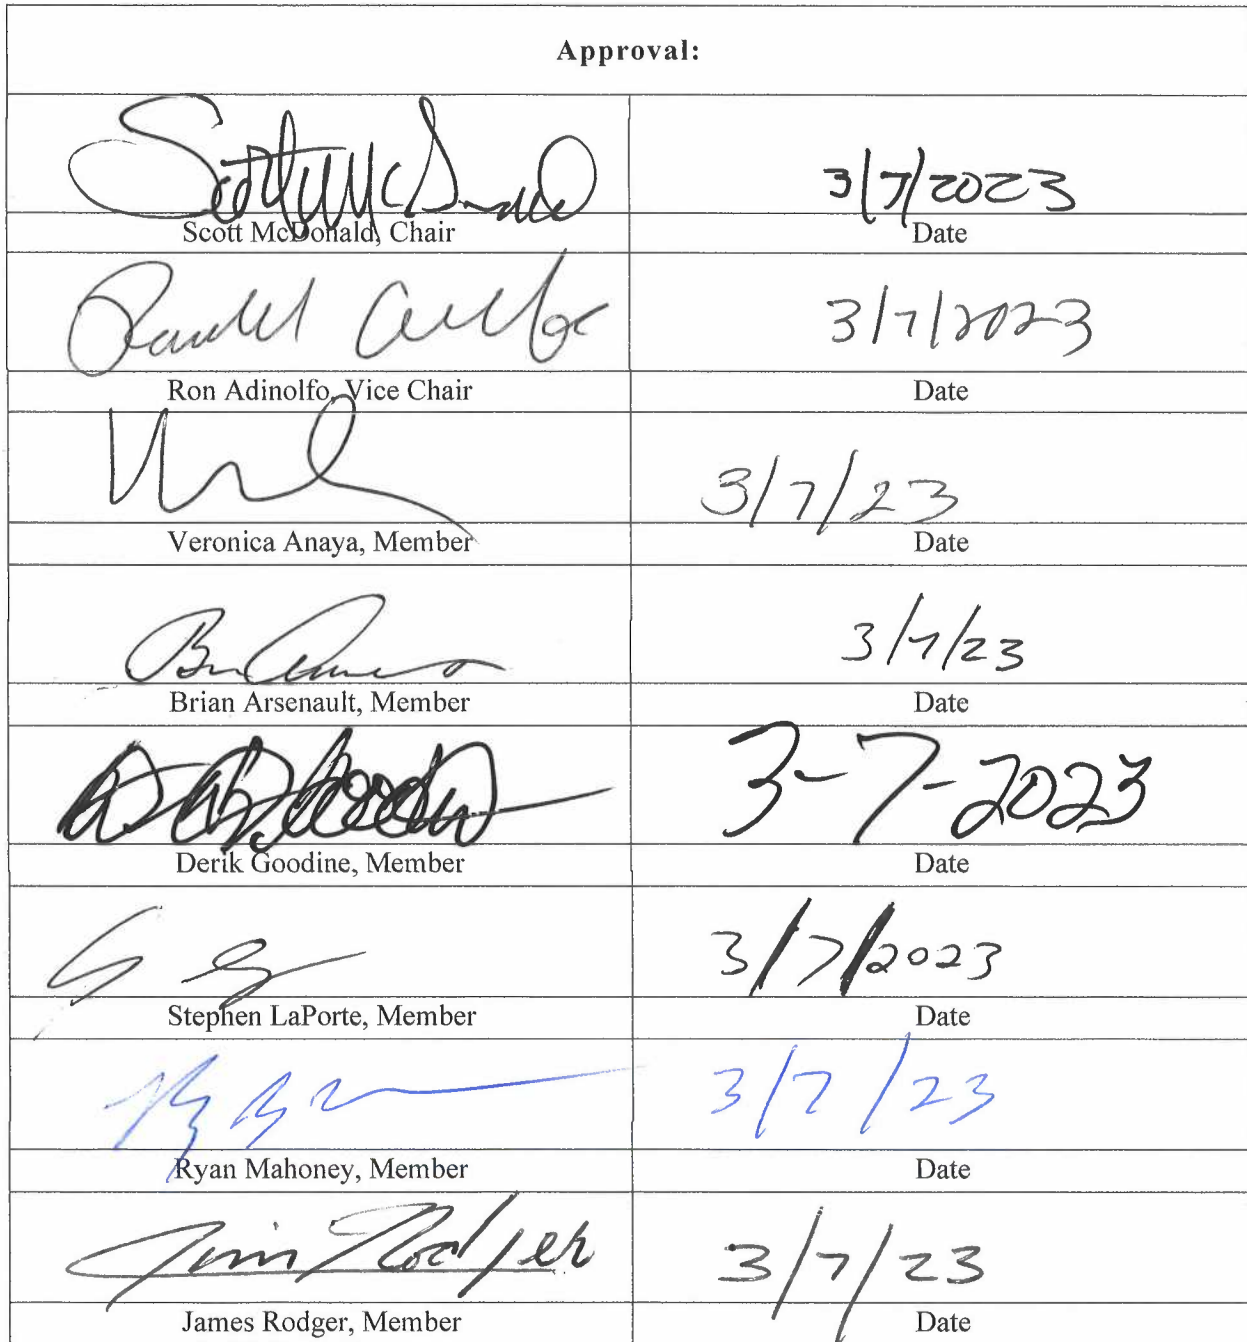 Approval:
3/7/2023
Scott McDonald, Chair Date
3/7/2023
Ron Adinolfo, Vice Chair Date
3/7/23
Veronica Anaya, Member Date
3/7/23
Brian Arsenault, Member Date
3-7-2023
Derik Goodine, Member Date
3/7/2023
Stephen LaPorte, Member Date
3/7/23
Ryan Mahoney, Member Date
Jim Rodger 3/7/23
James Rodger, Member Date